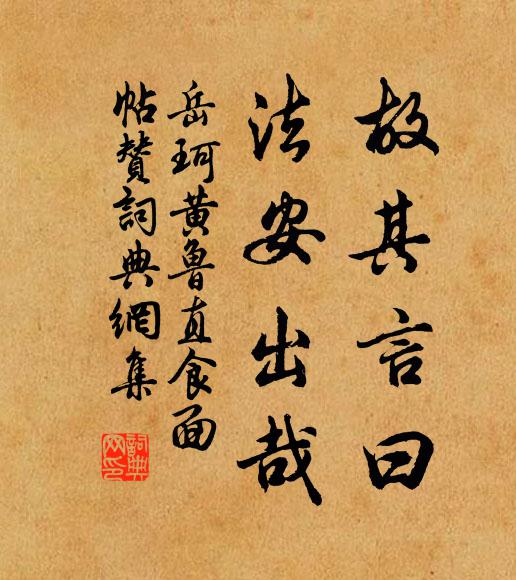 故其言曰
法安出哉
岳珂黄魯直食面
帖贊詞典網集
詞典网印